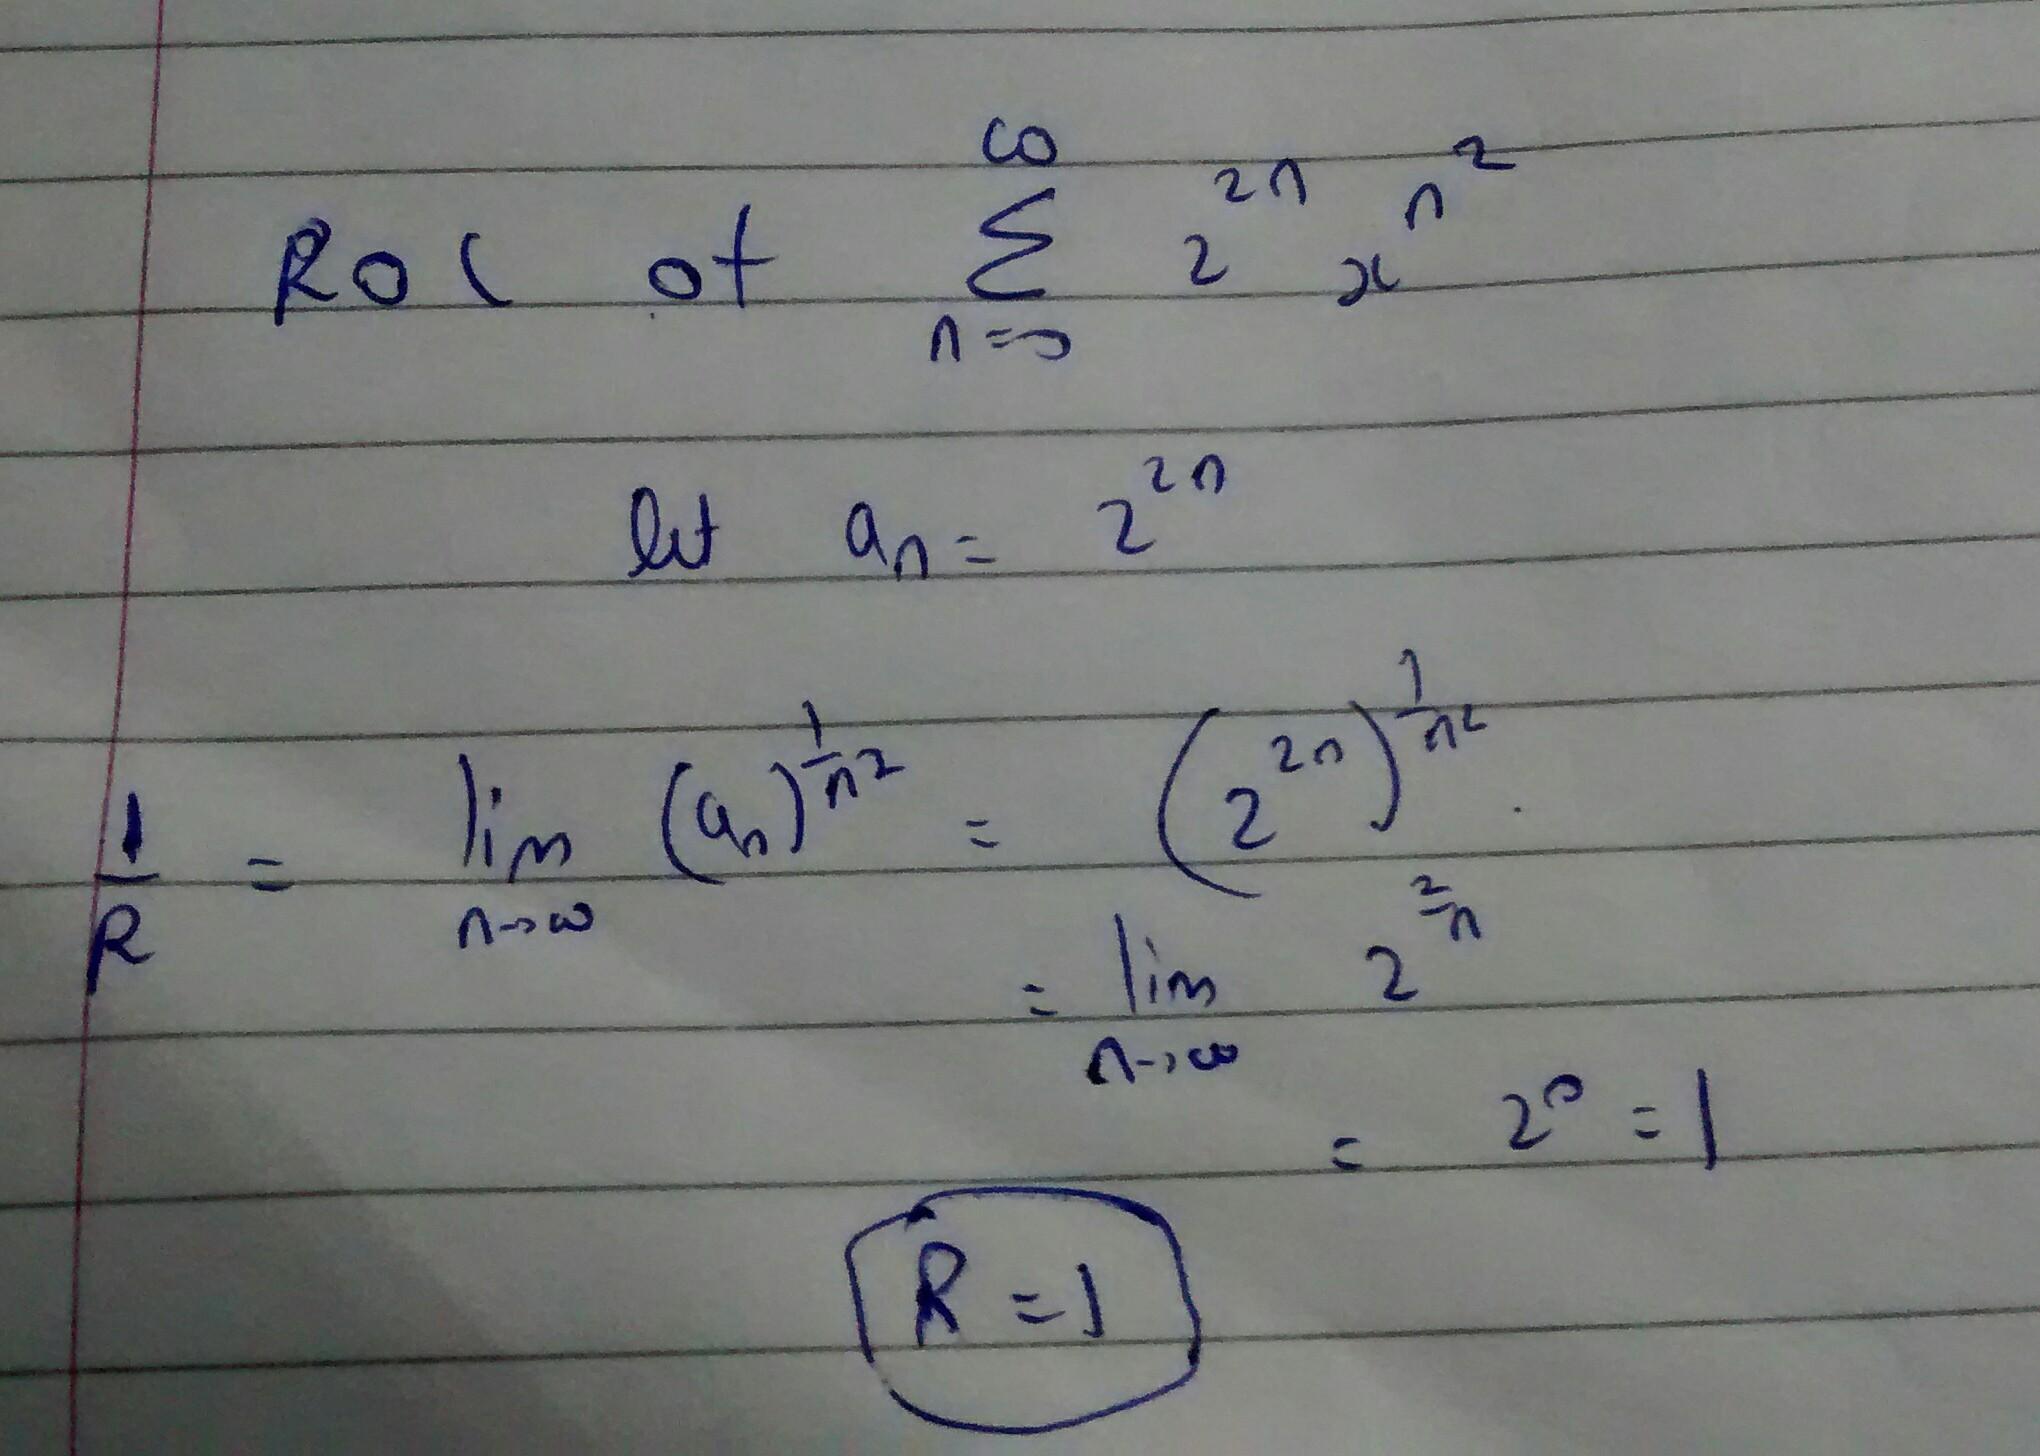 ROC of ∑_{n=0}^{∞} 2^{2n} x^{n^2}
let a_n = 2^{2n}
1/R = lim_{n→∞} (a_n)^{1/n^2} = (2^{2n})^{1/n^2}
= lim_{n→∞} 2^{2/n}
= 2^0 = 1
R = 1